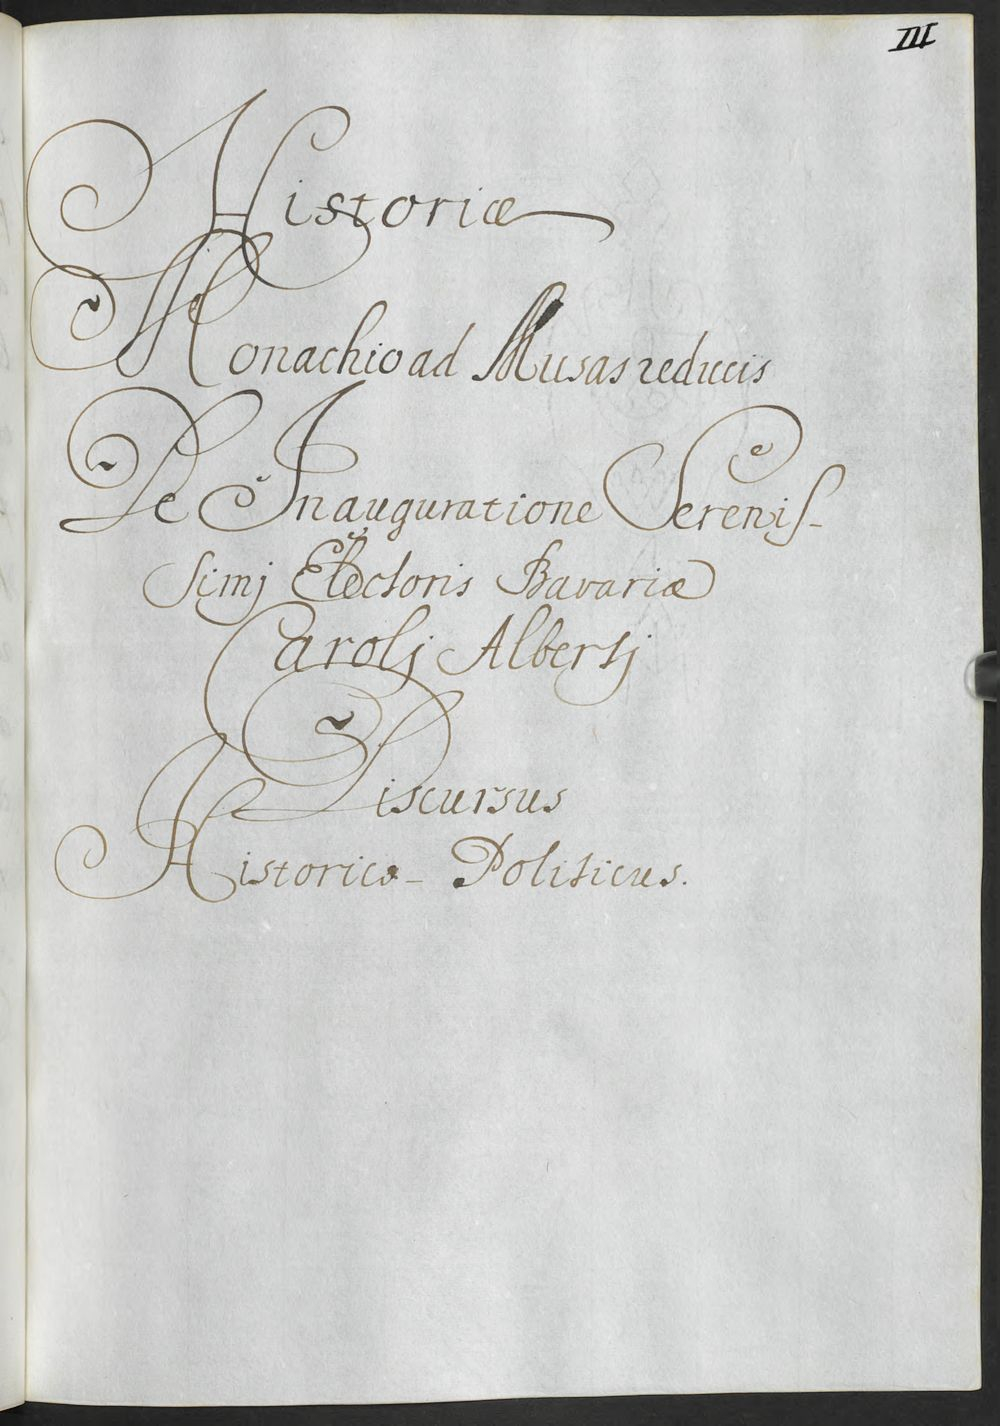 III
Historiæ
Monachio ad Musas reducis
De Inauguratione Serenis-
simj Electoris Bavariæ
Carolj Albertj
Discursus
Historico-Politicus.